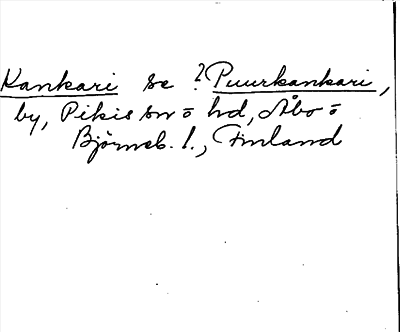 Kankari se ? Puurkankari,
by, Pikis sn o hd, Åbo o
Björneb. l., Finland